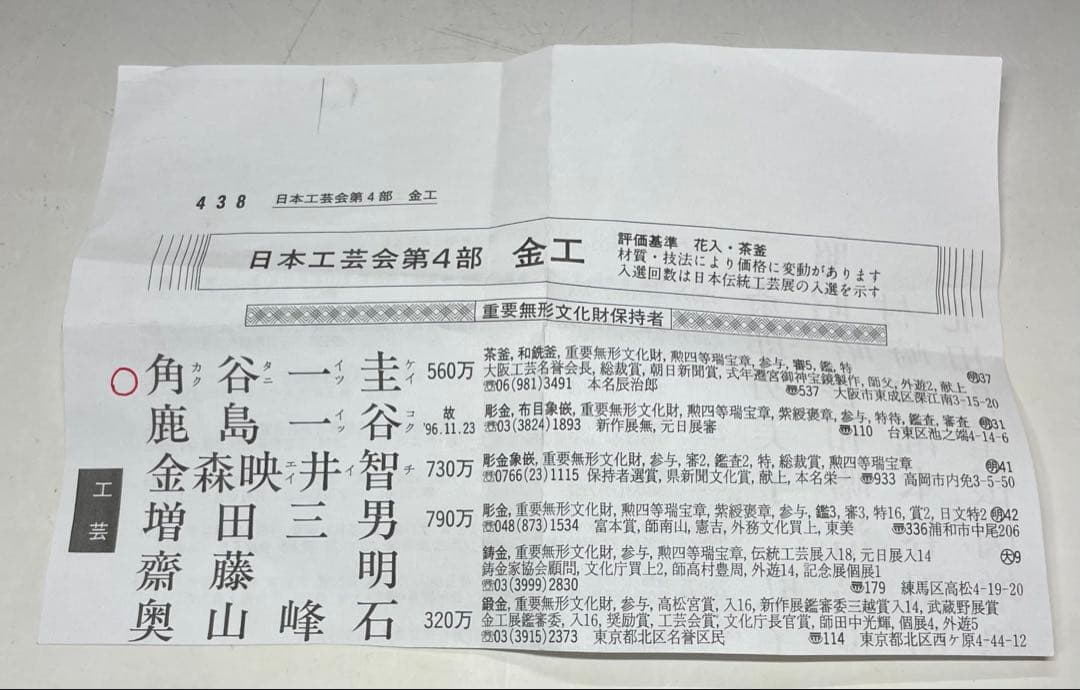 438 日本工芸会第4部 金工
日本工芸会第4部 金工
評価基準 花入・茶釜
材質・技法により価格に変動があります
入選回数は日本伝統工芸展の入選を示す
重要無形文化財保持者
角谷一圭 カクタニイッケイ 560万
茶釜, 和銑釜, 重要無形文化財, 勲四等瑞宝章, 参与, 審5, 鑑, 特 明37
大阪工芸名誉会長, 総裁賞, 朝日新聞賞, 式年遷宮御神宝鏡製作, 師父, 外遊2, 献上
☎06(981)3491 本名辰治郎 〠537 大阪市東成区深江南3-15-20
鹿島一谷 イッコク 故 '96.11.23
彫金, 布目象嵌, 重要無形文化財, 勲四等瑞宝章, 紫綬褒章, 参与, 特待, 鑑査, 審査 明31
☎03(3824)1893 新作展無, 元日展審 〠110 台東区池之端4-14-6
金森映井智 エイイチ 730万
彫金象嵌, 重要無形文化財, 参与, 審2, 鑑査2, 特, 総裁賞, 勲四等瑞宝章 明41
☎0766(23)1115 保持者選賞, 県新聞文化賞, 献上, 本名栄一 〠933 高岡市内免3-5-50
工芸
増田三男 790万
彫金, 重要無形文化財, 勲四等瑞宝章, 紫綬褒章, 参与, 鑑3, 審3, 特16, 賞2, 日文特2 明42
☎048(873)1534 富本賞, 師南山, 憲吉, 外務文化買上, 東美 〠336浦和市中尾206
齋藤明
鋳金, 重要無形文化財, 参与, 勲四等瑞宝章, 伝統工芸展入18, 元日展入14 大9
鋳金家協会顧問, 文化庁買上2, 師高村豊周, 外遊14, 記念展個展1
☎03(3999)2830 〠179 練馬区高松4-19-20
奥山峰石 320万
鍛金, 重要無形文化財, 参与, 高松宮賞, 入16, 新作展鑑審委三越賞入14, 武蔵野展賞
金工展鑑審委, 入16, 奨励賞, 工芸会賞, 文化庁長官賞, 師田中光輝, 個展4, 外遊5
☎03(3915)2373 東京都北区名誉区民 〠114 東京都北区西ヶ原4-44-12